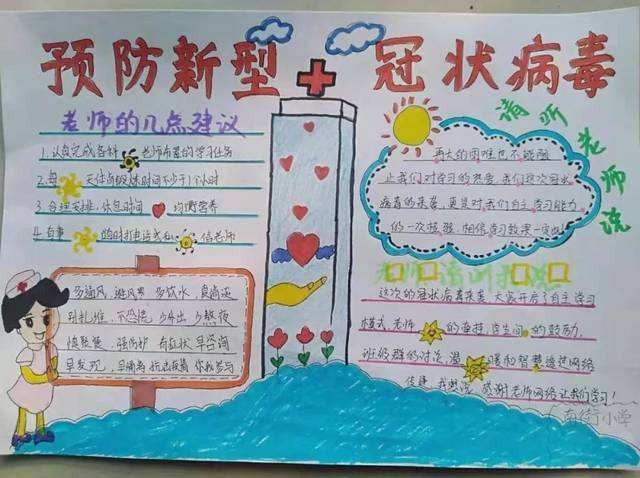 预防新型冠状病毒
老师的几点建议
1.认真完成各科老师布置的学习任务
2.每天体育锻炼时间不少于1个小时
3.合理安排休息时间 均衡营养
4.有事的时打电话或 信老师
多通风 避风寒 多饮水 身尚逸
别扎堆 不恐慌 少外出 少熬夜
慎聚餐 强防护 有症状 早咨询
早发现 早隔离 抗击疫情 你我参与
请听老师说
再大的困难也不能阻
止我们对学习的热度,我们这次冠状
病毒的来袭,更是对我们自主学习能力
的一次检验,相信学习效果一定
老师请听我说
这次的冠状病毒来袭 大家开启了自主学习
模式,老师的牵挂 的鼓励,
班级群的讨论 温暖和智慧连这网络
传递 我想说 感谢老师网络让我们学习!
南街小学